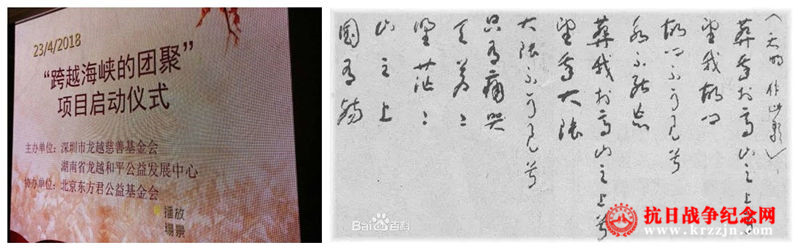 23/4/2018
“跨越海峡的团聚”
项目启动仪式
主办单位：深圳市龙越慈善基金会
湖南省龙越和平公益发展中心
协办单位：北京东方君公益基金会
播放
场景
（天明作此歌）
葬我於高山之上兮
望我故鄉
故鄉不可見兮
永不能忘
葬我於高山之上兮
望我大陸
大陸不可見兮
只有痛哭
天蒼々
野茫々
山之上
國有殤
Bai百科
抗日战争纪念网
www.krzzjn.com